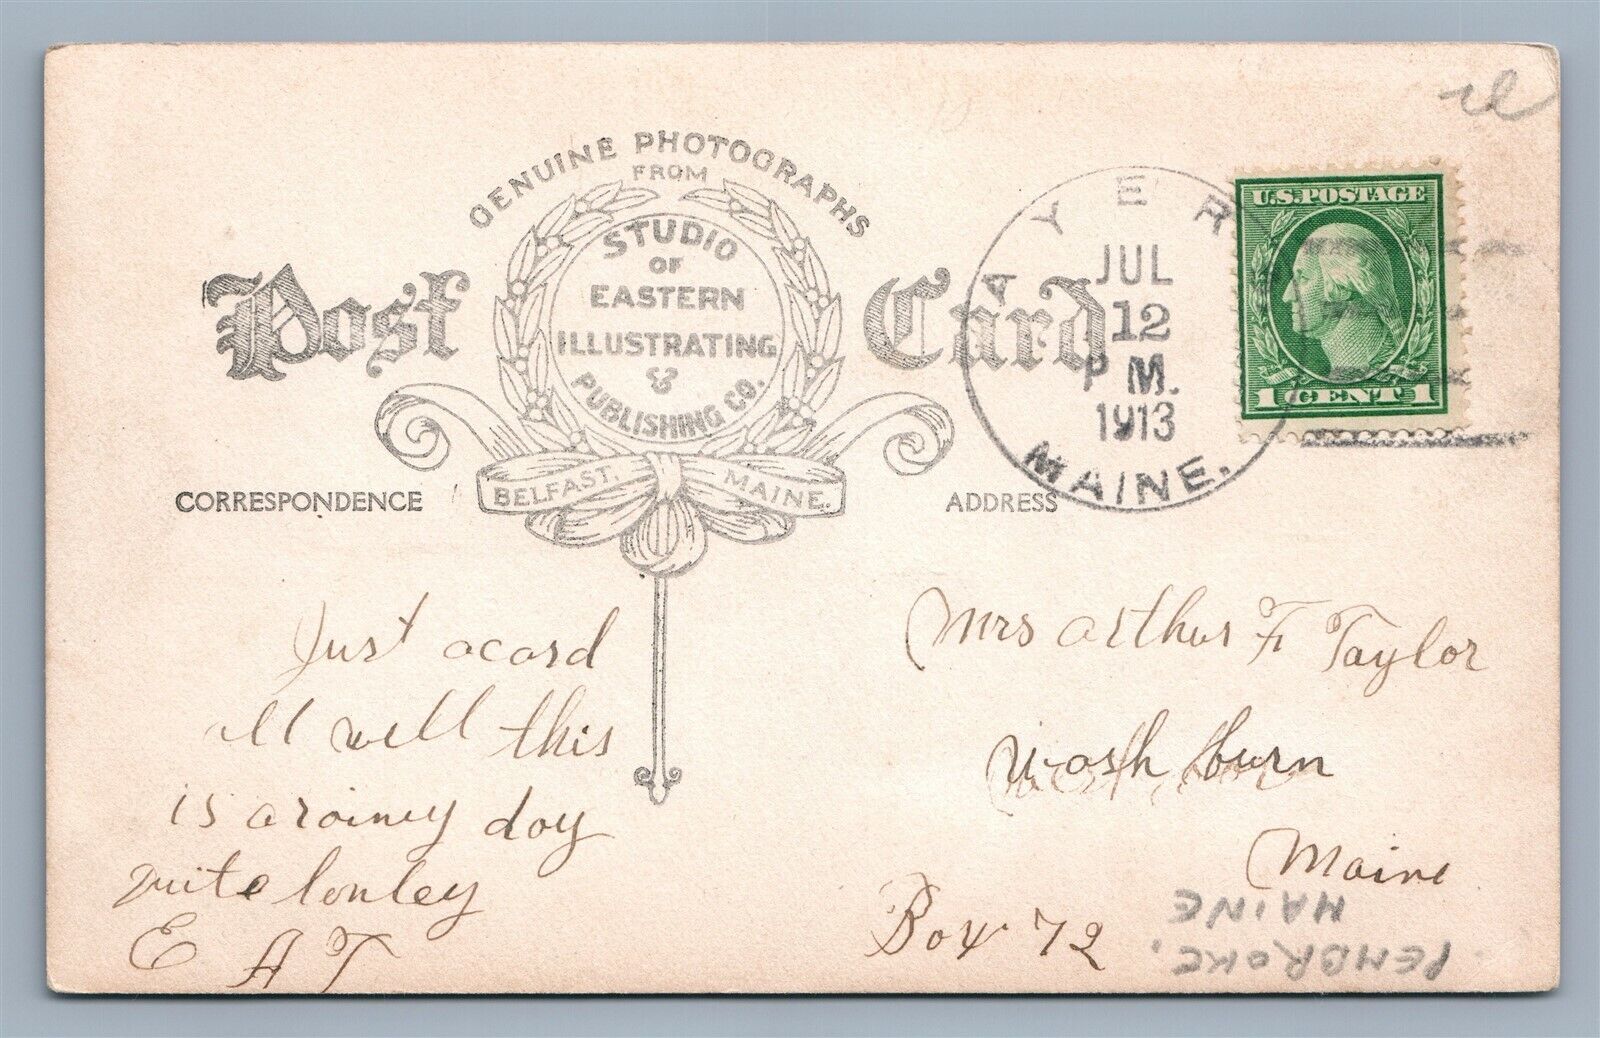 GENUINE PHOTOGRAPHS
FROM
STUDIO
OF
EASTERN
ILLUSTRATING
&
PUBLISHING CO.
BELFAST, MAINE.
Post Card
CORRESPONDENCE
ADDRESS
AYER
JUL
12
P M.
1913
MAINE.
U.S. POSTAGE
1 CENT 1
Just acard
all well this
is a rainey day
quite lonley
E A T
Mrs Arthur F Taylor
Wash burn
Maine
Box 72
PEMBROKE,
MAINE